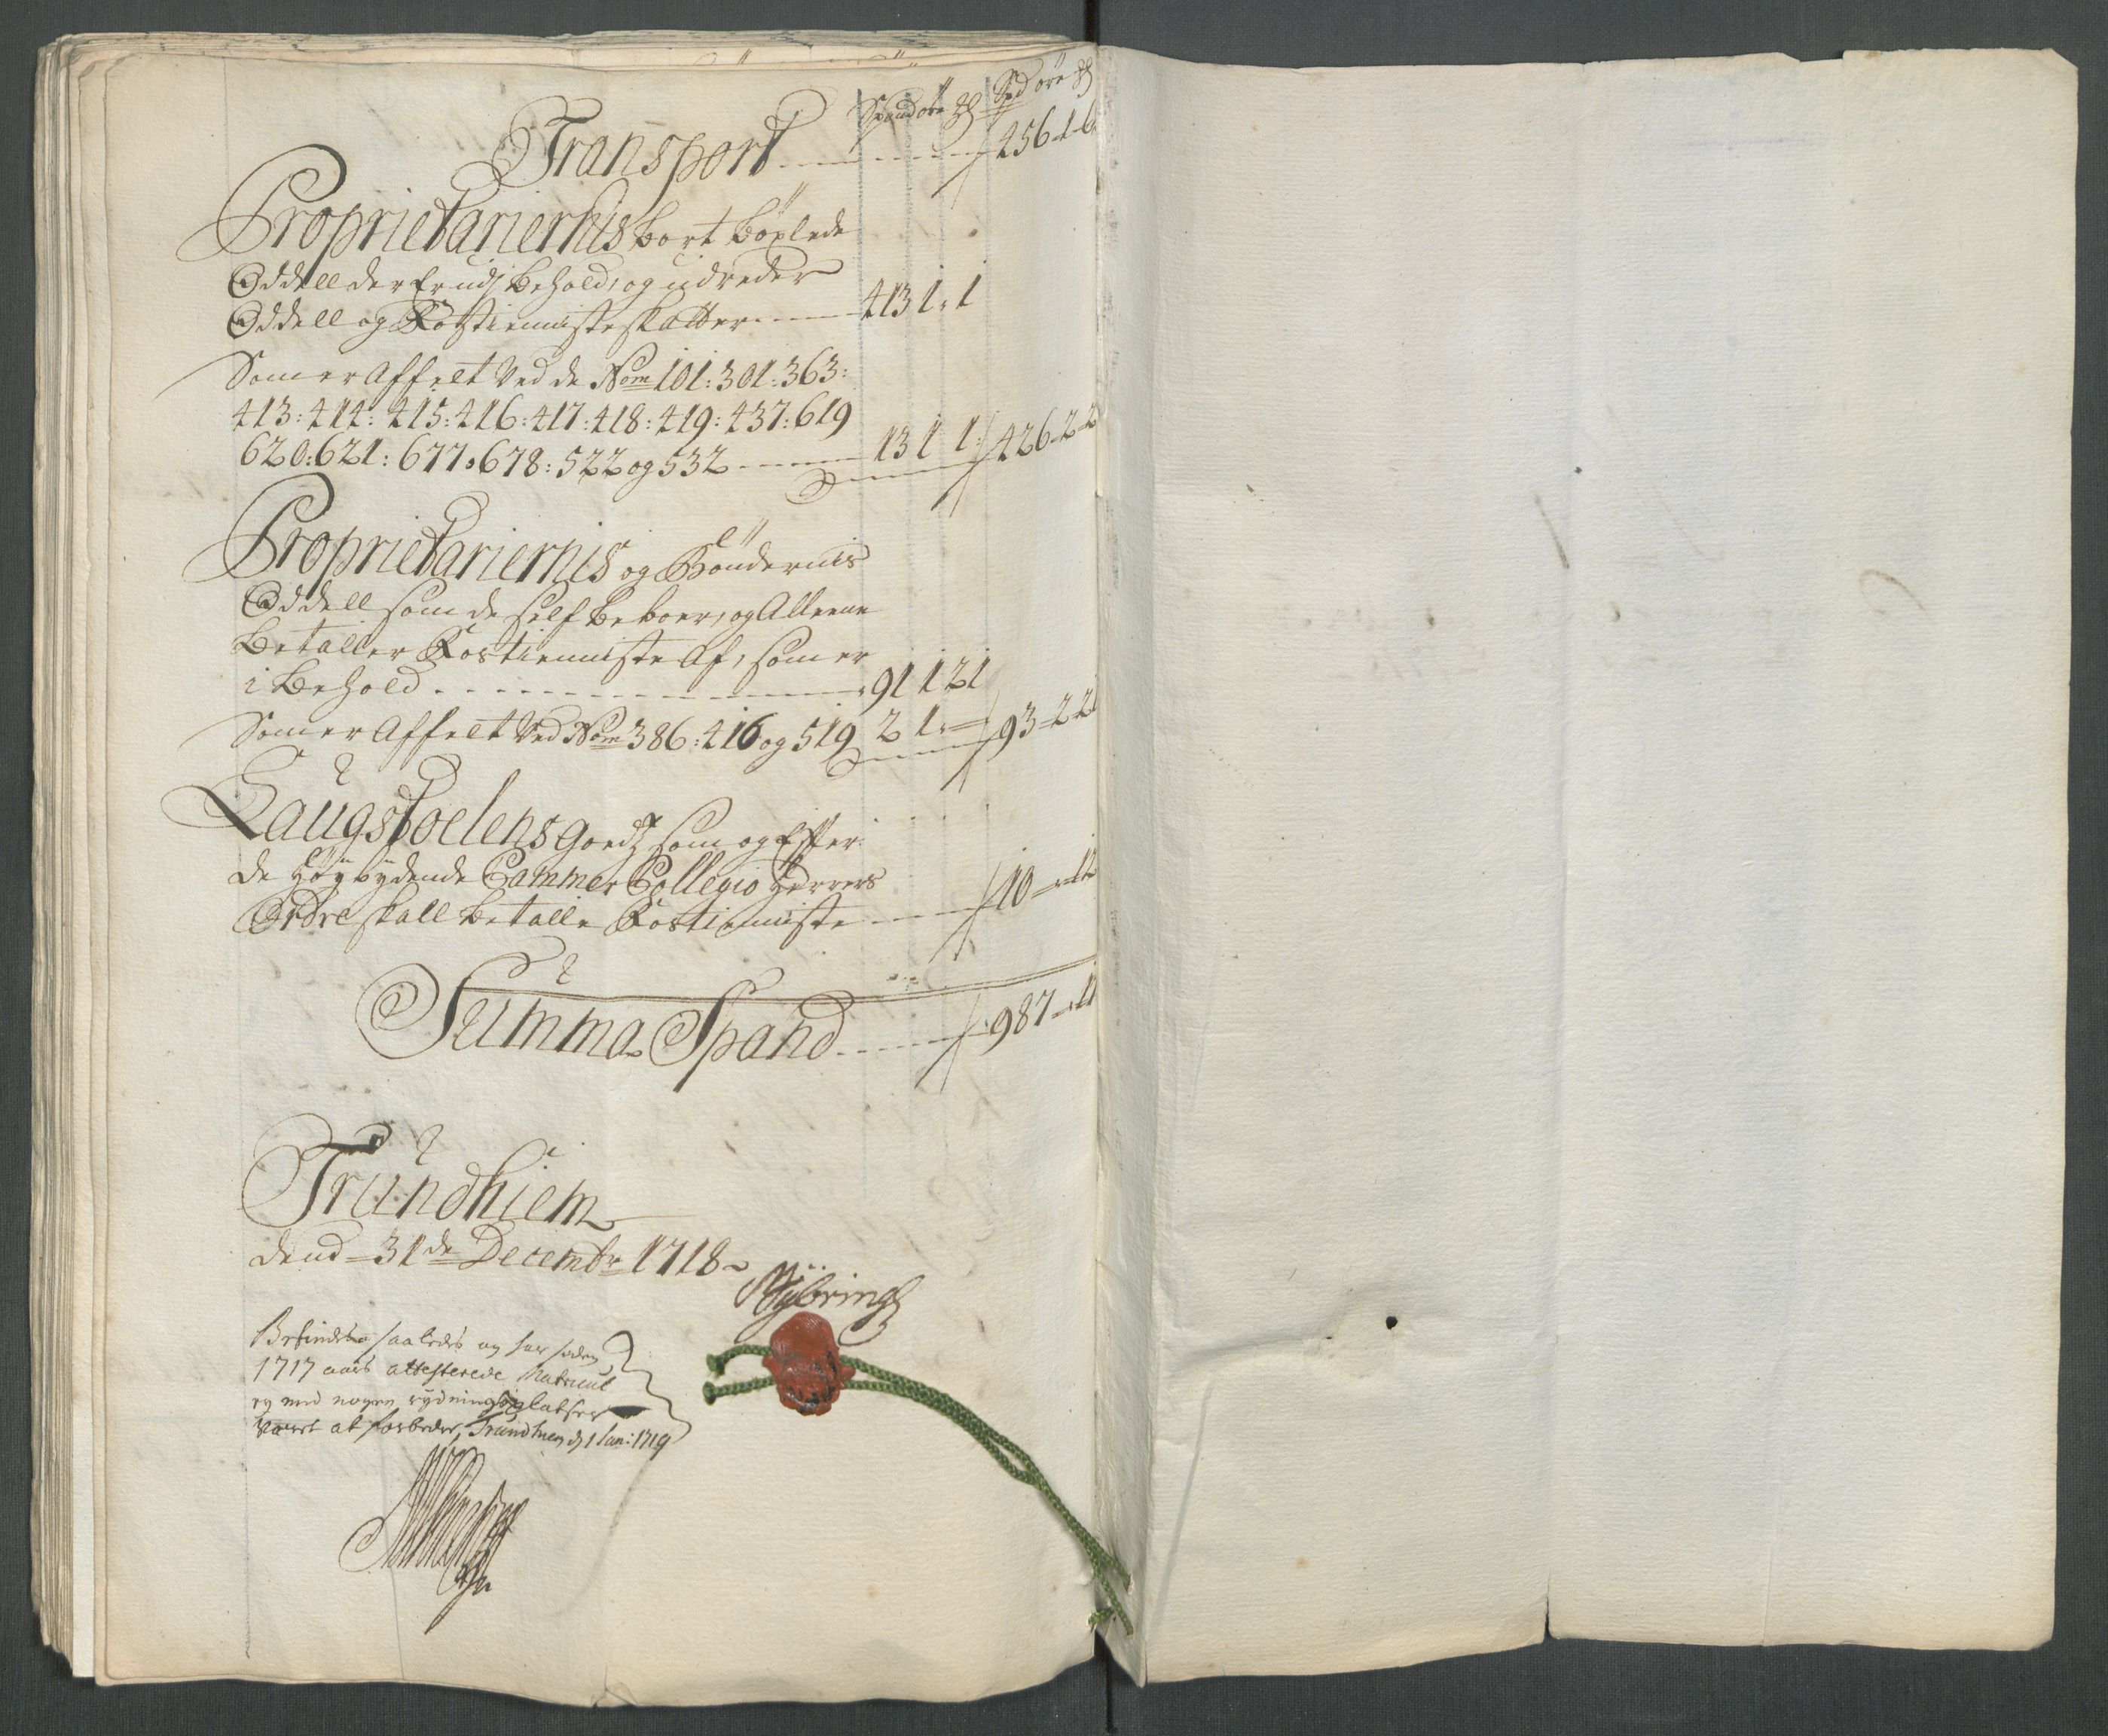 Spand øre Sp. øre
Transport 456-1-6
Proprietariernis bort böxlede
Oddell der Er udj behold, og udreder
Oddell og Rostienniste skatter 413 1: 1
Som er affelt Ved de Nom 101: 301: 363:
413: 414: 415: 416: 417: 418: 419: 437: 619
620: 621: 677: 678: 522 og 532 13 1 1: 426-2-2
Proprietariernis og Böndernis
Oddell som de self beboer, og Alleene
Betaller Rostienniste Af, som er
i Behold 91 1 21
Som er Affelt Ved Nom 386: 416 og 519 2 1 93-2-21
Laugstoelens goedz som og Efter
de Höybydende Cammer Collegio Herrers
Ordre skall betalle Rostienniste 10
Summa Spand 987
Trundhiem
dend 31de Decembr 1718
Nybringh
Befindes saaledes og har siden
1717 aars attesterede Matricul
ey med nogen rydningsplatser
været at forbedre, Trundhiem dj 1 Jan: 1719